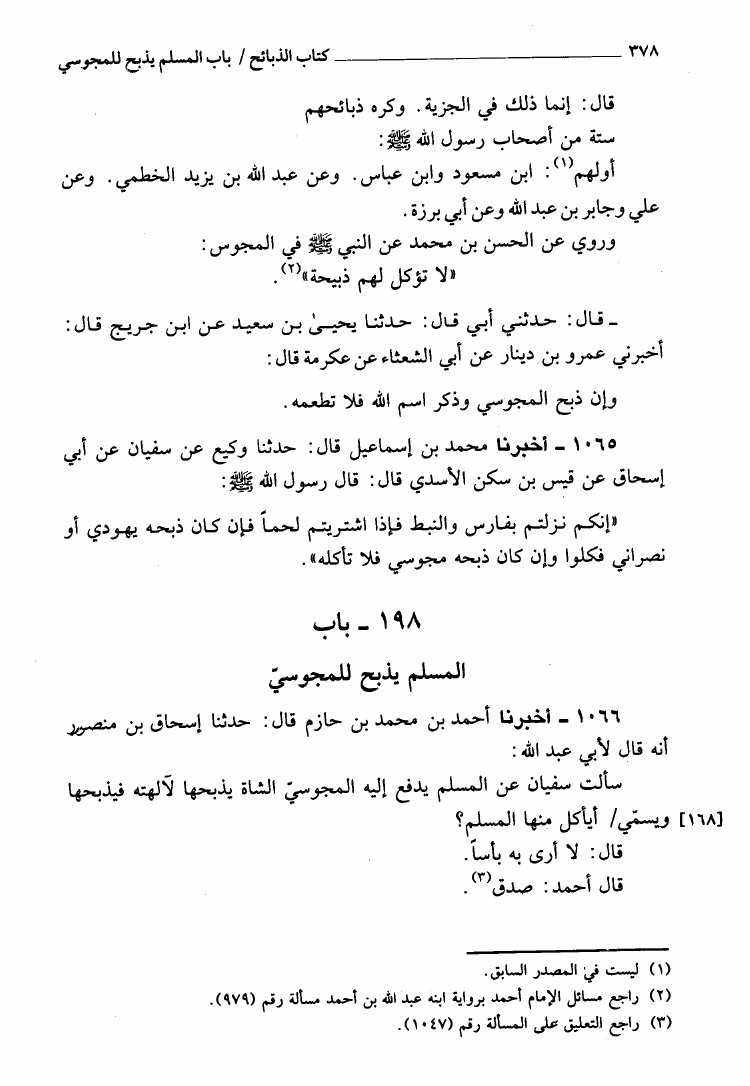 ٣٧٨ ــــــــــــــــــــــــــــــــ كتاب الذبائح / باب المسلم يذبح للمجوسي
قال: إنما ذلك في الجزية. وكره ذبائحهم
ستة من أصحاب رسول الله ﷺ:
أولهم(١): ابن مسعود وابن عباس. وعن عبد الله بن يزيد الخطمي. وعن
علي وجابر بن عبد الله وعن أبي برزة.
وروي عن الحسن بن محمد عن النبي ﷺ في المجوس:
«لا تؤكل لهم ذبيحة»(٢).
ـ قال: حدثني أبي قال: حدثنا يحيىٰ بن سعيد عن ابن جريج قال:
أخبرني عمرو بن دينار عن أبي الشعثاء عن عكرمة قال:
وإن ذبح المجوسي وذكر اسم الله فلا تطعمه.
١٠٦٥ ـ أخبرنا محمد بن إسماعيل قال: حدثنا وكيع عن سفيان عن أبي
إسحاق عن قيس بن سكن الأسدي قال: قال رسول الله ﷺ:
«إنكم نزلتم بفارس والنبط فإذا اشتريتم لحماً فإن كان ذبحه يهودي أو
نصراني فكلوا وإن كان ذبحه مجوسي فلا تأكله».
١٩٨ ـ باب
المسلم يذبح للمجوسيّ
١٠٦٦ ـ أخبرنا أحمد بن محمد بن حازم قال: حدثنا إسحاق بن منصور
أنه قال لأبي عبد الله:
سألت سفيان عن المسلم يدفع إليه المجوسيّ الشاة يذبحها لآلهته فيذبحها
[١٦٨] ويسمّي/ أيأكل منها المسلم؟
قال: لا أرى به بأساً.
قال أحمد: صدق(٣).
(١) ليست في المصدر السابق.
(٢) راجع مسائل الإمام أحمد برواية ابنه عبد الله بن أحمد مسألة رقم (٩٧٩).
(٣) راجع التعليق على المسألة رقم (١٠٤٧).